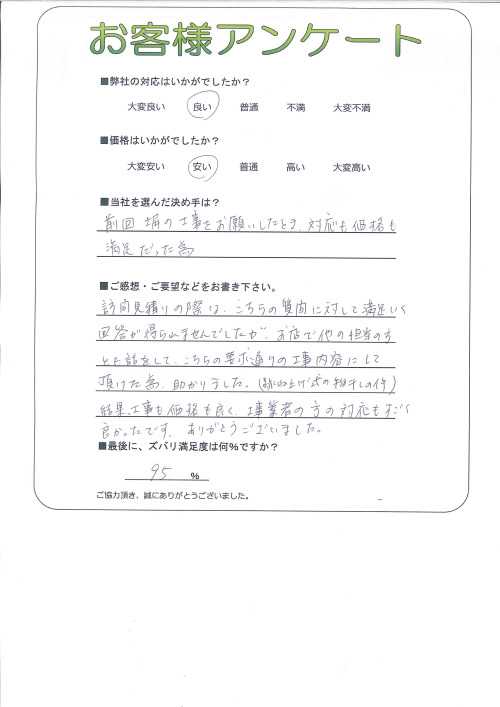 お客様アンケート
■弊社の対応はいかがでしたか？
大変良い 良い 普通 不満 大変不満
■価格はいかがでしたか？
大変安い 安い 普通 高い 大変高い
■当社を選んだ決め手は？
前回 塀の工事をお願いしたとき、対応も価格も
満足だった為
■ご感想・ご要望などをお書き下さい。
訪問見積りの際は、こちらの質問に対して満足いく
回答が得られませんでしたが、お店で他の担当の方
とも話をして、こちらの要求通りの工事内容にして
頂けた為、助かりました。(跳ね上げ式の物干しの件)
結果、工事も価格も良く、工事業者の方の対応もすごく
良かったです。ありがとうございました。
■最後に、ズバリ満足度は何%ですか？
95 %
ご協力頂き、誠にありがとうございました。